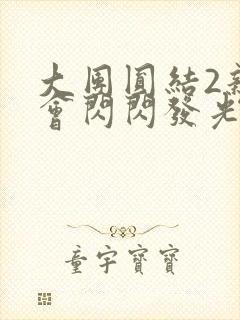 大團圓結2新
會閃閃發光
童宇寶寶